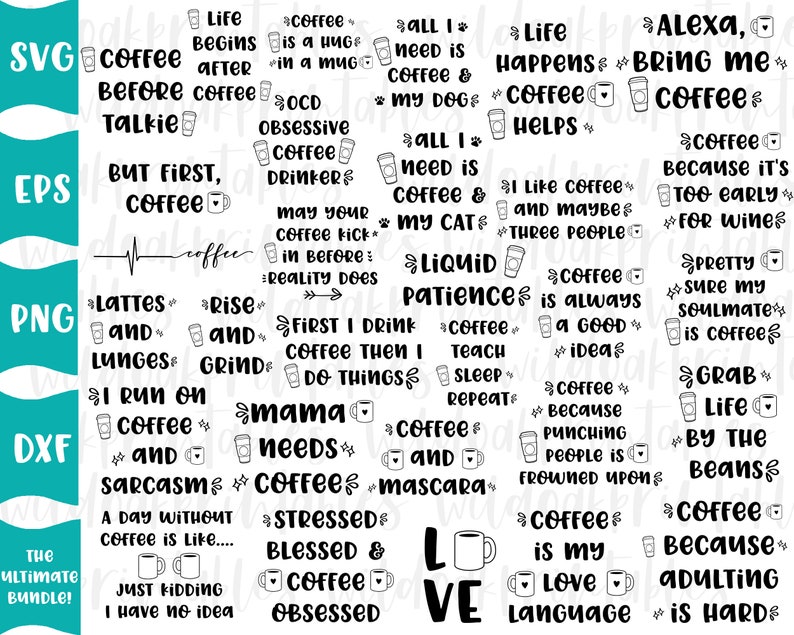 SVG
EPS
PNG
DXF
THE
ULTIMATE
BUNDLE!
COFFEE
BEFORE
TALKIE
LIFE
BEGINS
AFTER
COFFEE
COFFEE
IS A HUG
IN A MUG
ALL I
NEED IS
COFFEE &
MY DOG
LIFE
HAPPENS
COFFEE
HELPS
ALEXA,
BRING ME
COFFEE
OCD
OBSESSIVE
COFFEE
DRINKER
BUT FIRST,
COFFEE
ALL I
NEED IS
COFFEE &
MY CAT
I LIKE COFFEE
AND MAYBE
THREE PEOPLE
COFFEE
BECAUSE IT'S
TOO EARLY
FOR WINE
coffee
MAY YOUR
COFFEE KICK
IN BEFORE
REALITY DOES
LIQUID
PATIENCE
COFFEE
IS ALWAYS
A GOOD
IDEA
PRETTY
SURE MY
SOULMATE
IS COFFEE
LATTES
AND
LUNGES
RISE
AND
GRIND
FIRST I DRINK
COFFEE THEN I
DO THINGS
COFFEE
TEACH
SLEEP
REPEAT
COFFEE
BECAUSE
PUNCHING
PEOPLE IS
FROWNED UPON
GRAB
LIFE
BY THE
BEANS
I RUN ON
COFFEE
AND
SARCASM
MAMA
NEEDS
COFFEE
COFFEE
AND
MASCARA
A DAY WITHOUT
COFFEE IS LIKE....
JUST KIDDING
I HAVE NO IDEA
STRESSED
BLESSED &
COFFEE
OBSESSED
L
VE
COFFEE
IS MY
LOVE
LANGUAGE
COFFEE
BECAUSE
ADULTING
IS HARD
wildoakprintables